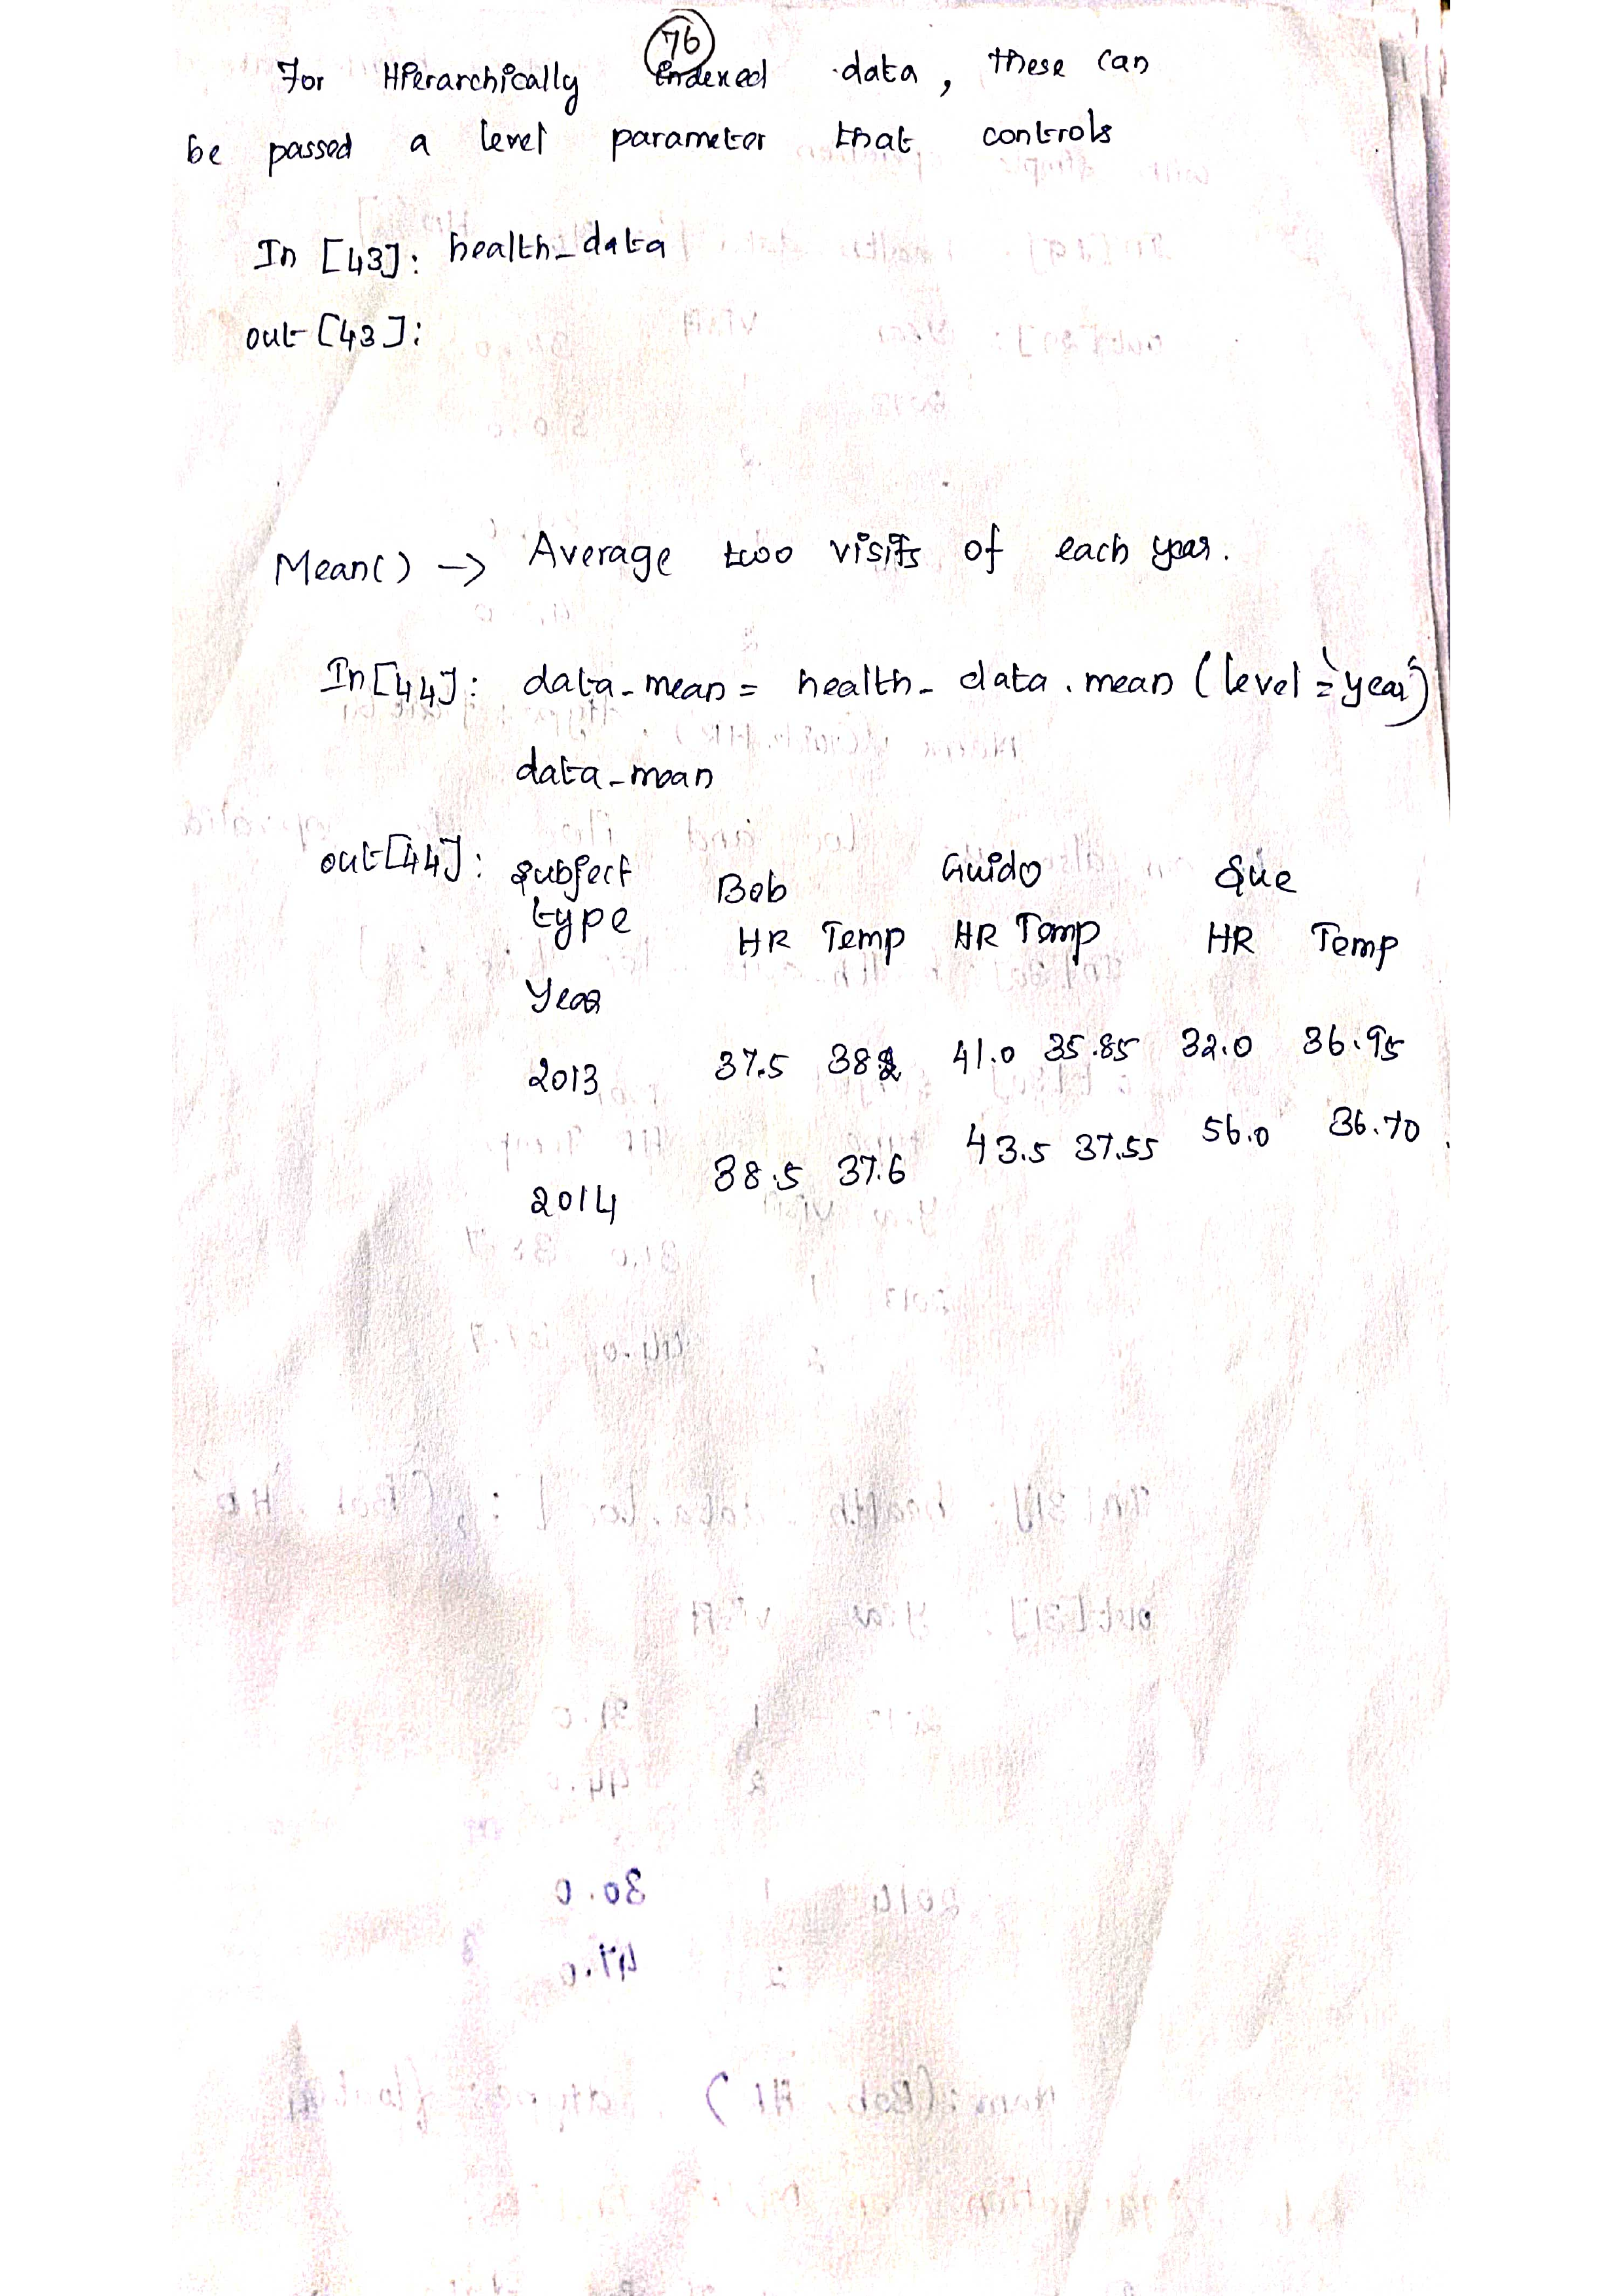 76
For Hierarchically indexed data, these can
be passed a level parameter that controls
In [43]: health_data
out [43]:
Mean() -> Average two visits of each year.
In[44]: data_mean = health_data.mean (level = 'year')
data_mean
out[44]: subject Bob Guido Sue
type HR Temp HR Temp HR Temp
Year
2013 37.5 38.2 41.0 35.85 32.0 36.95
2014 38.5 37.6 43.5 37.55 56.0 36.70